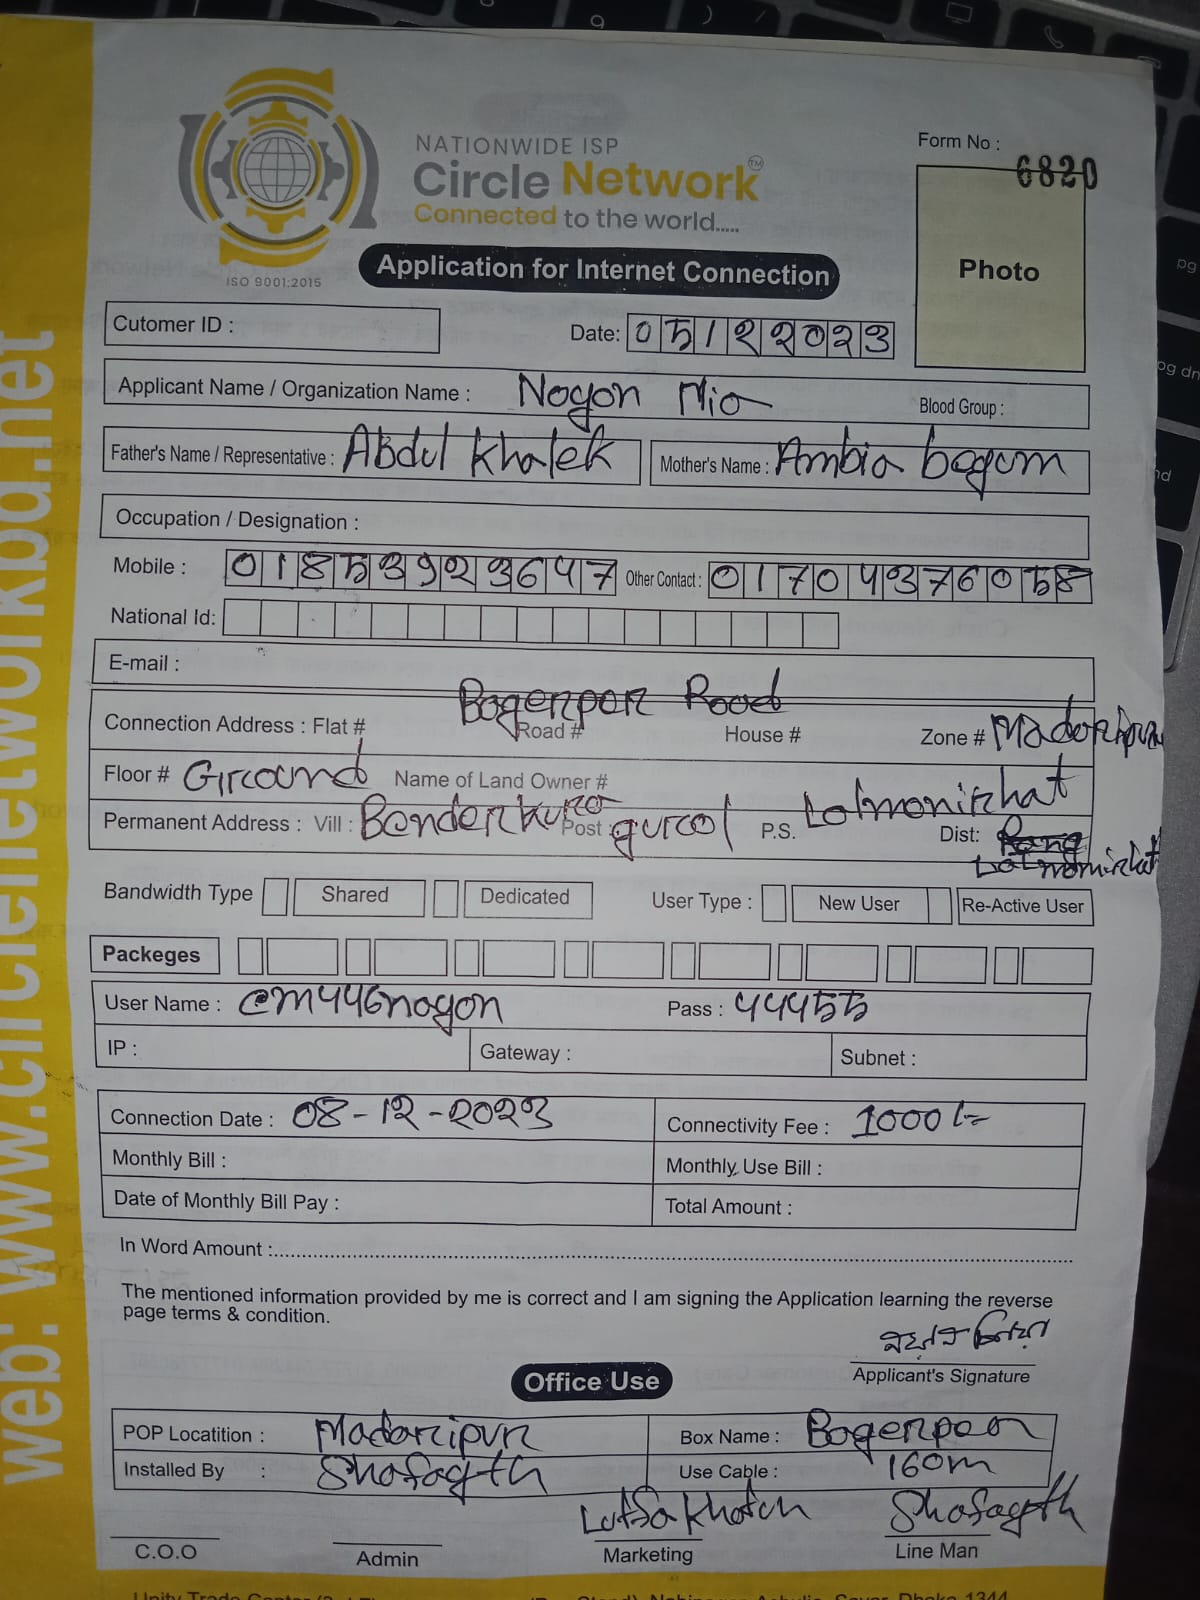 NATIONWIDE ISP
Circle Network™
Connected to the world.....
ISO 9001:2015
Form No : 6820
Photo
Application for Internet Connection
Cutomer ID :
Date: 05122023
Applicant Name / Organization Name : Nogon Mio
Blood Group :
Father's Name / Representative : Abdul Khalek
Mother's Name : Ambia begom
Occupation / Designation :
Mobile : 01853923647 Other Contact : 01704376058
National Id:
E-mail :
Connection Address : Flat # Road # Bogerpar Rood House # Zone # Madoripur
Floor # Giround Name of Land Owner #
Permanent Address : Vill : Benderkura Post gurol P.S. Lolmonirhat Dist: Lolmonirhat
Bandwidth Type Shared Dedicated User Type : New User Re-Active User
Packeges
User Name : cm446nogon Pass : 44455
IP : Gateway : Subnet :
Connection Date : 08-12-2023 Connectivity Fee : 1000/=
Monthly Bill : Monthly Use Bill :
Date of Monthly Bill Pay : Total Amount :
In Word Amount :
The mentioned information provided by me is correct and I am signing the Application learning the reverse
page terms & condition.
Applicant's Signature
Office Use
POP Locatition : Madaripur Box Name : Bogerpar
Installed By : Shofaqth Use Cable : 160m
Lutfa Khatun Shofaqth
C.O.O Admin Marketing Line Man
web: www.circlenetworkbd.net